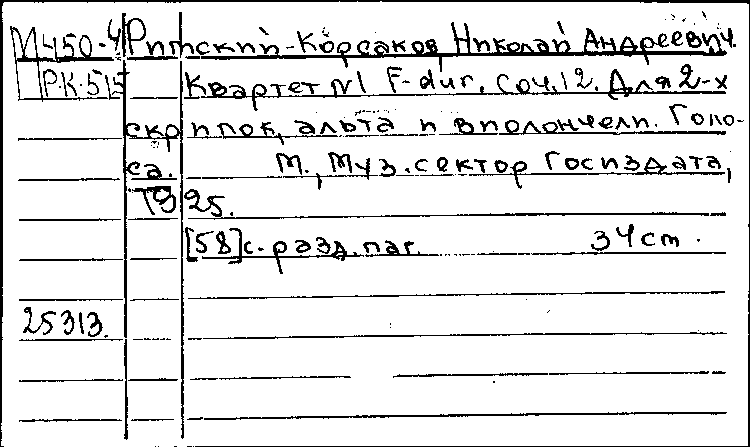 М450-4 Римский-Корсаков, Николай Андреевич.
Р.К-515 Квартет №1 F-dur, соч.12. Для 2-х
скрипок, альта и виолончели. Голо-
са. М., Муз.сектор Госиздата,
1925.
[58]с.разд.паг. 34cm.
25313.